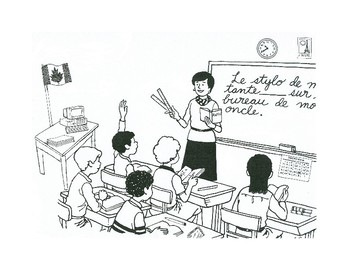 Le stylo de m
tante ___ sur
bureau de mo
oncle.